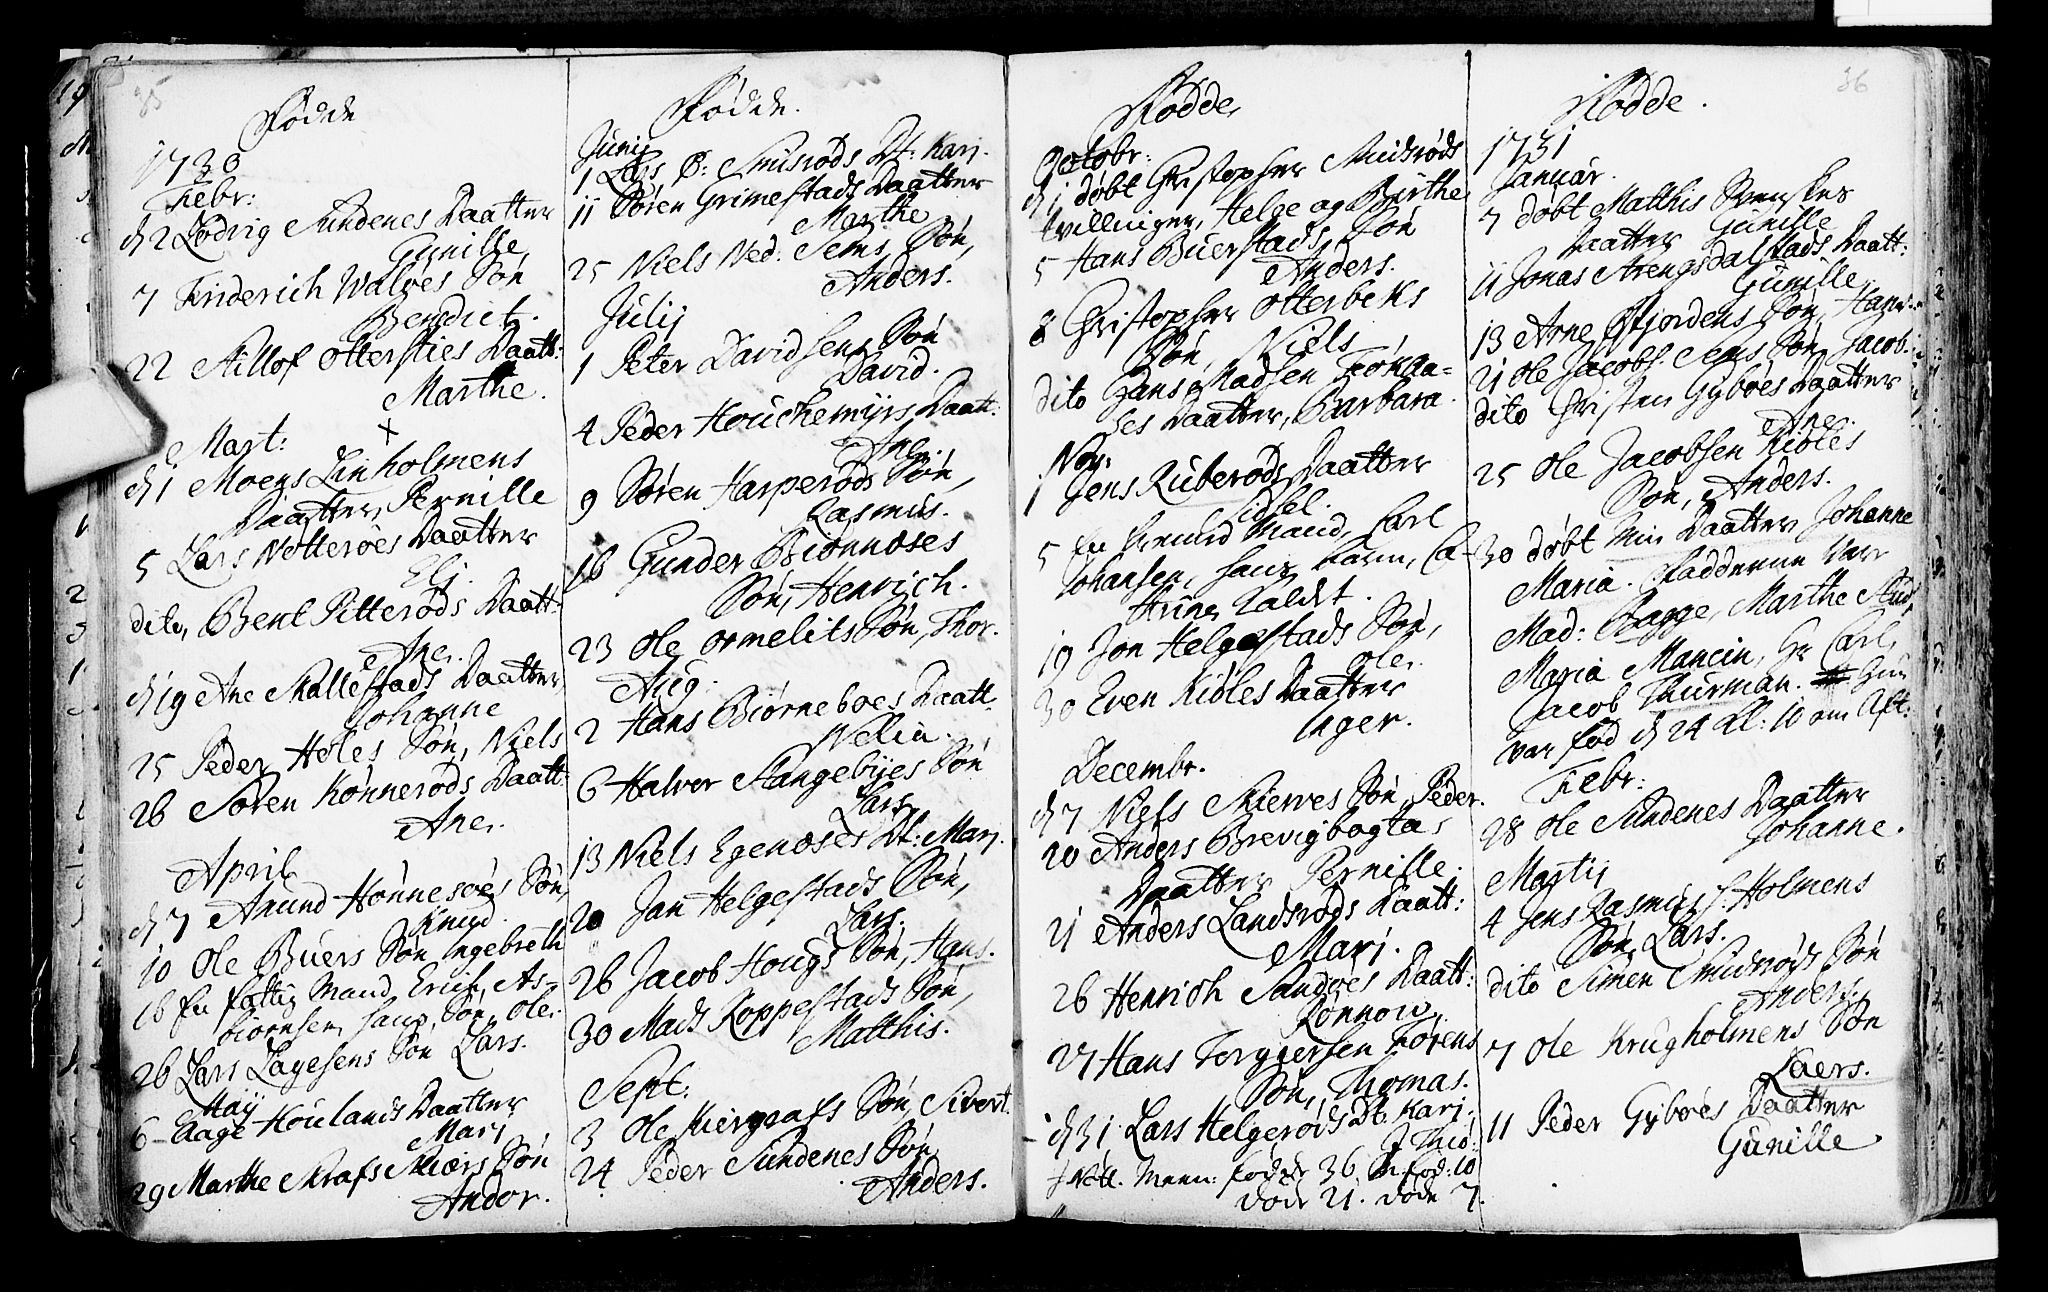 35
Fødde
1730
Febr:
d 2 Lodvig Sundenes Daatter
Gunille
7 Friderich Waløes Søn
Benedict.
22 Stillof Ottersties Daatt:
Marthe.
Mart:
d 1 Moens Linholmens
Daatter, Pernille
5 Lars Nøtterøes Daatter
Elj.
dito, Bent Pitterøds Daatt:
Ane.
d 19 Ane Mallestads Daatter
Johanne
25 Peder Holes Søn, Niels
26 Søren Kønnerøds Daatt:
Ane.
April
d 7 Amund Hønnesøes Søn
Knud.
10 Ole Buers Søn Ingebreth
16 En fattig Mand, Erich As-
biørnsen hans Søn, Ole.
26 Lars Lagesens Søn Lars.
Maij
6 Aage Houlands Daatter
Marj
29 Marthe Skrafs Skiærs Søn
Andor.
Fødde.
Junij
1 Lars B: Smisrøds Dt: Karj.
11 Søren Grimestads Daatter
Marthe
25 Niels Ned: Sems Søn,
Anders.
Julij
1 Peter Davidsens Søn
David.
4 Peder Houchemyrs Daatt:
Ane.
9 Søren Harperøds Søn,
Rasmus.
16 Gunder Biønnæses
Søn, Henrich.
23 Ole Ormelits Søn, Thor.
Aug:
2 Hans Biørneboes Daatt.
Velia.
6 Halvor Stangebyes Søn
Lars.
13 Niels Egenæses Dt: Marj.
20 Jan Helgestads Søn,
Lars.
26 Jacob Hougs Søn, Hans.
30 Mads Roppestads Søn,
Matthis.
Sept:
3 Ole Kiergrafs Søn, Sivert.
24 Peder Sundenes Søn,
Anders.
Fødde
Octobr:
d 1 døbt Christopher Smidsrøds
tvillinger, Helge og Birthe
5 Hans Buerstads Søn
Anders.
8 Christopher Otterbeks
Søn, Niels
dito Hans Madsen
ses Daatter, Barbara.
Nov:
1 Jens Ruberøds Daatter
Sidsel.
5 En fremmed Mand, Carl
Johansen, hans barn, Ca-
thrine kaldt.
19 Jon Helgestads Søn,
Ole.
30 Even Kiøles Daatter
Inger.
Decembr.
d 7 Niels Skierves Søn Peder.
20 Anders Brevigbogtas
Daatter Pernille.
21 Anders Landsrøds Daatt:
Marj.
26 Henrich Sandøes Daatt:
Rønnow.
27 Hans Torggersen Førens
Søn, Thomas.
d 31 Lars Helgerøds Dt. Karj.
J Thiø:
J Nøtt. Meen: fødde 36 fød: 10
døde 21. døde 7.
36
Fødde.
1731
Januar.
7 døbt Matthis Svenskes
Daatter Gunille
11 Jonas Arengsdalstads Daatt:
Gunille.
13 Arne Fiordens Søn, Hans.
21 Ole Jacobs. Sems Søn, Jacob.
dito Christen Gybøes Daatter
Ane.
25 Ole Jacobsen Kiøles
Søn, Anders.
30 døbt Min Daatter Johanne
Maria. Fadderne var
Mad: Bagge, Marthe And,
Maria Mancin, Hr Carl,
Jacob Thurman. hun
var fød d 24 kl: 10 om Aft:
Febr:
28 Ole Sundenes Daatter
Johanne.
Martij
4 Jens Rasmus s. Holmens
Søn, Lars.
dito Simen Smidsrøds Søn
Anders.
7 Ole Krugholmens Søn
Laers.
11 Peder Gybøes Daatter
Gunille